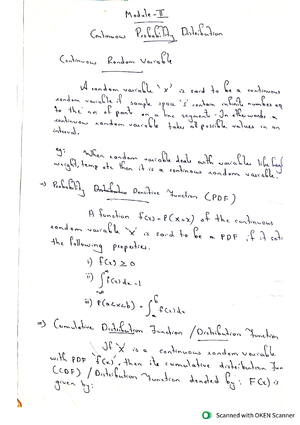 Module-II
Continuous Probability Distribution
Continuous Random Variable
A random variable 'x' is said to be a continuous
random variable if sample space 's' contain infinite number eq
to the no of point on a line segment. In otherwords a
continuous random variable takes at possible values in an
interval.
eg: When random variable deals with variables like heig
weight, temp etc then it is a continous random variable.
⇒ Probability Densitive Function (PDF)
A function f(x) = P(X=x) of the continuous
random variable 'X' is said to be a PDF, if it sati
the following properties.
i) f(x) ≥ 0
ii) ∫ f(x) dx = 1
iii) P(a<x<b) = ∫ₐᵇ f(x) dx
⇒ Cumulative Distribution Function / Distribution Function
If 'X' is a continuous random variable
with PDF 'f(x)', then its cumulative distribution Fun
(CDF) / Distribution Function denoted by: F(x) is
given by:
Scanned with OKEN Scanner